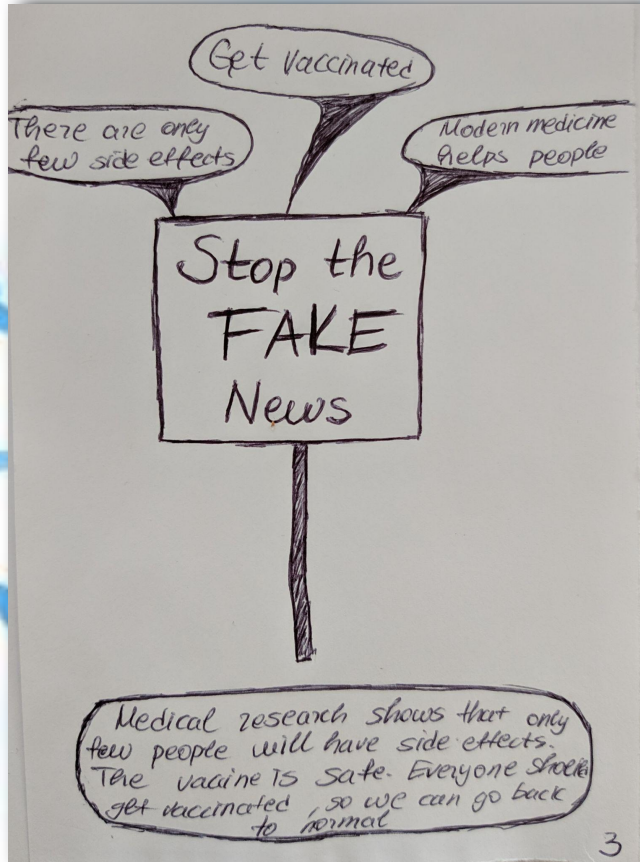 Get vaccinated
There are only
few side effects
Modern medicine
helps people
Stop the
FAKE
News
Medical research shows that only
few people will have side effects.
The vaccine is safe. Everyone should
get vaccinated, so we can go back
to normal
3